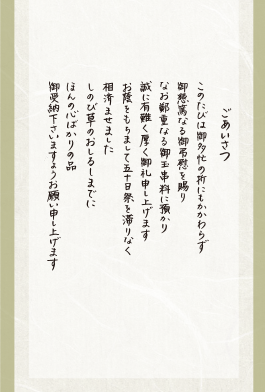 ごあいさつ
このたびは御多忙の折にもかかわらず
御懇篤なる御弔慰を賜り
なお鄭重なる御玉串料に預かり
誠に有難く厚く御礼申し上げます
お蔭をもちまして五十日祭を滞りなく
相済ませました
しのび草のおしるしまでに
ほんの心ばかりの品
御受納下さいますようお願い申し上げます